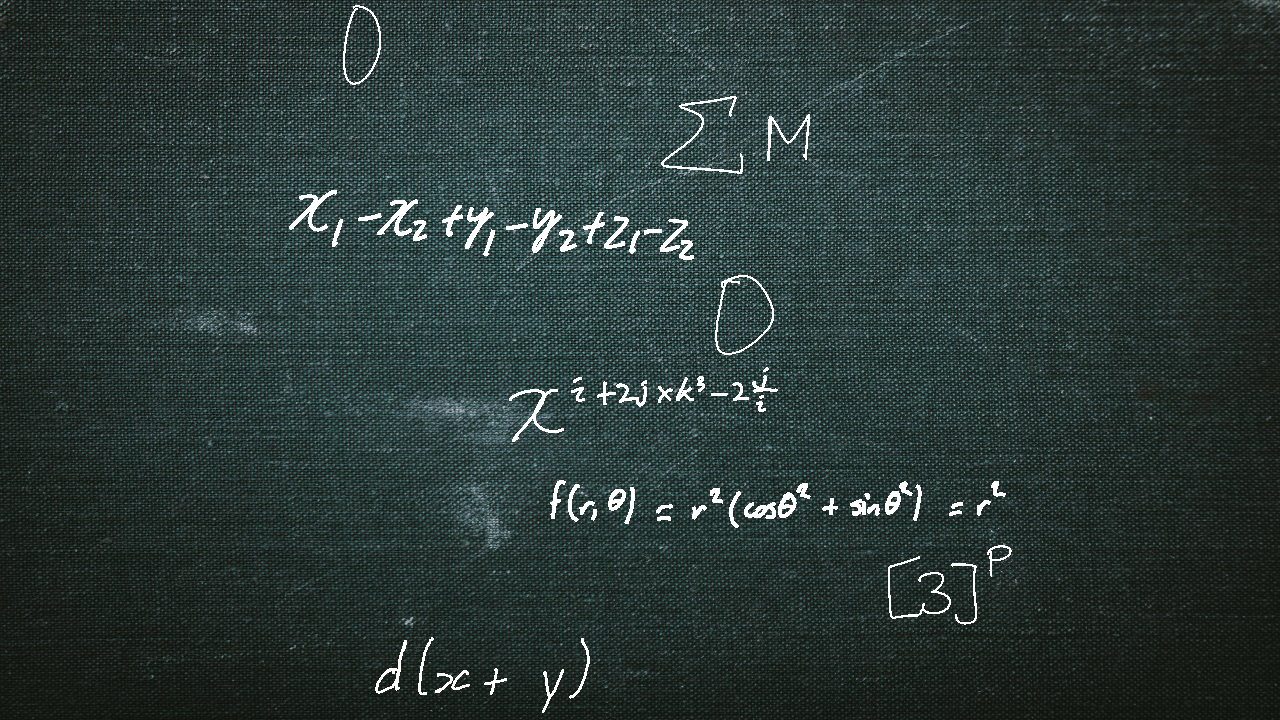 0
∑ M
x₁ - x₂ + y₁ - y₂ + z₁ - z₂
0
x^{i + 2j × k³ - 2\frac{j}{i}}
f(r, θ) = r² (cosθ² + sinθ²) = r²
[3]^p
d(x + y)